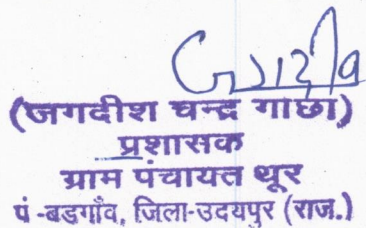 जगदीश
(जगदीश चन्द्र गाछा)
प्रशासक
ग्राम पंचायत थूर
पं -बडगाँव, जिला-उदयपुर (राज.)